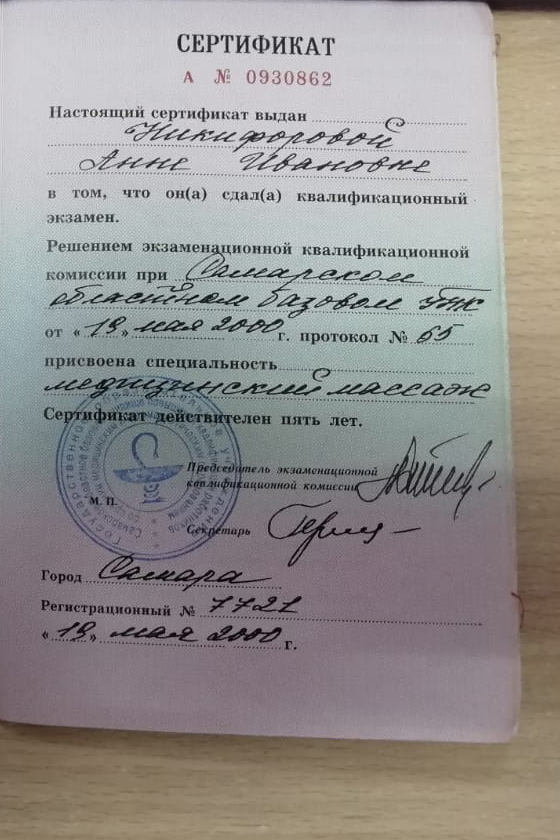 СЕРТИФИКАТ
А № 0930862
Настоящий сертификат выдан
Никифоровой
Анне Ивановне
в том, что он(а) сдал(а) квалификационный
экзамен.
Решением экзаменационной квалификационной
комиссии при Самарском
областном базовом
от «19» мая 2000 г. протокол № 65
присвоена специальность
медицинский массаж
Сертификат действителен пять лет.
Председатель экзаменационной
квалификационной комиссии
М. П.
Секретарь
Город Самара
Регистрационный № 7721
«19» мая 2000 г.